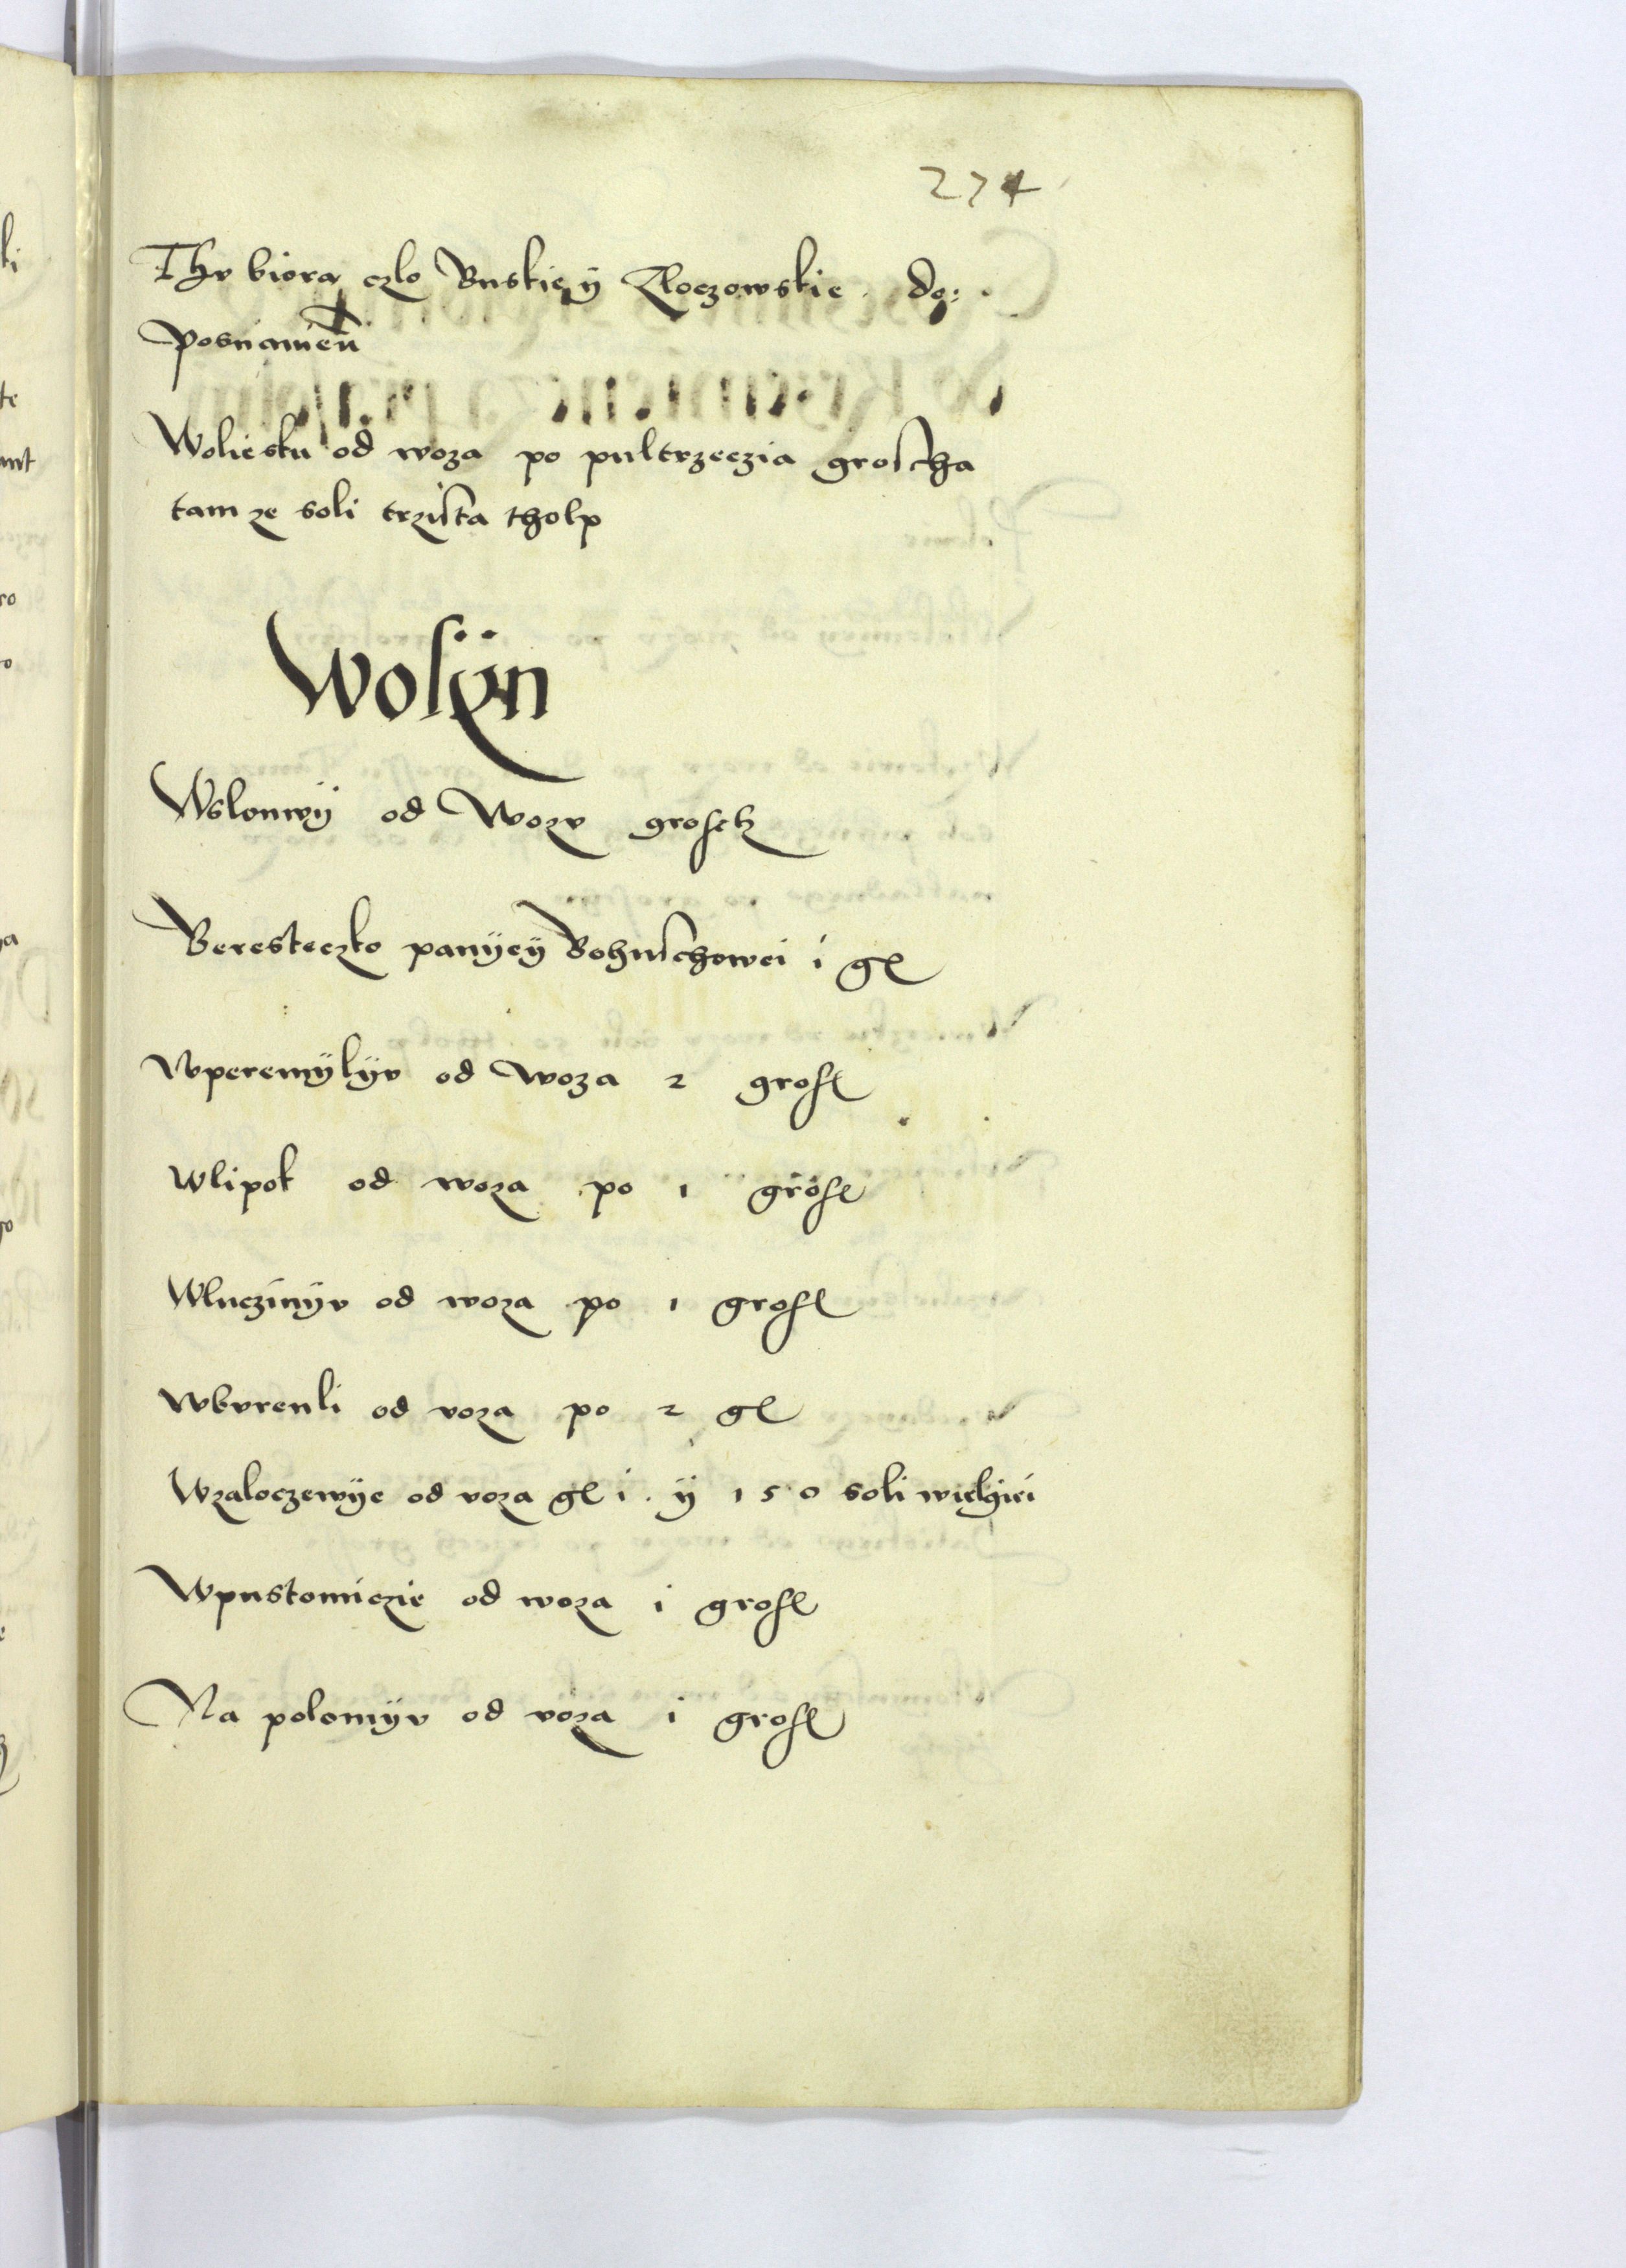 274
Thv biora czlo Buskie ÿ Zloczowskie do:
Posnanień
Woliesku od woza po pultrzeczia groscha
tam ze soli trzista tholp
Wolÿn
Wslonwÿ od Wozv grosch
Beresteczko panÿeÿ Bohuschowei i gl
Wperemÿlÿv od woza 2 grosl
Wlipok od woza po 1 grosl
Wluczinÿv od woza po 1 grosl
Wbvrenli od voza po 2 gl
Wzaloczewÿe od voza gl i ÿ 150 soli wielgiei
Wpustomiczie od woza i grosl
Na polomÿv od voza i grosl